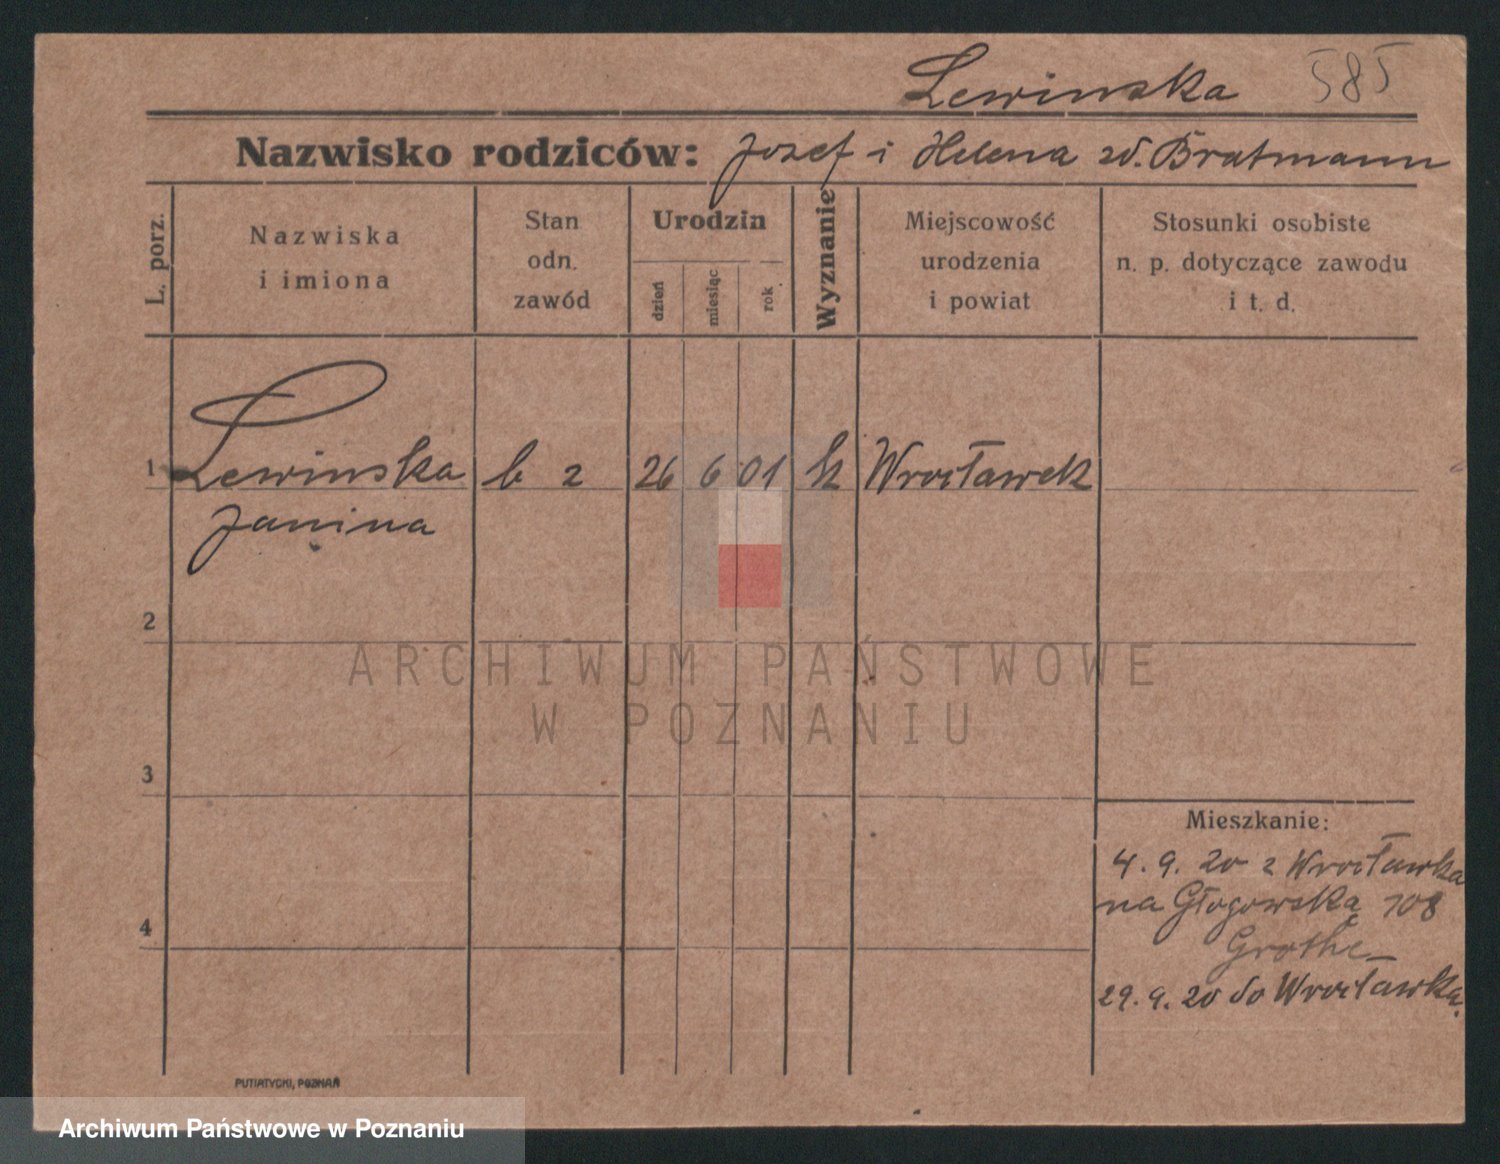 Lewinska 585
Nazwisko rodziców: Jozef i Helena zd. Bratmann
L. porz.
Nazwiska
i imiona
Stan
odn.
zawód
Urodzin
dzień
miesiąc
rok
Wyznanie
Miejscowość
urodzenia
i powiat
Stosunki osobiste
n. p. dotyczące zawodu
i t. d.
1 Lewinska b z 26 6 01 k Wrocławek
Janina
2
3
4
Mieszkanie:
4. 9. 20 z Wrocławka
na Głogowską 108
Grothe
29. 9. 20 do Wrocławka.
PUTIATYCKI, POZNAŃ
ARCHIWUM PAŃSTWOWE
W POZNANIU
Archiwum Państwowe w Poznaniu